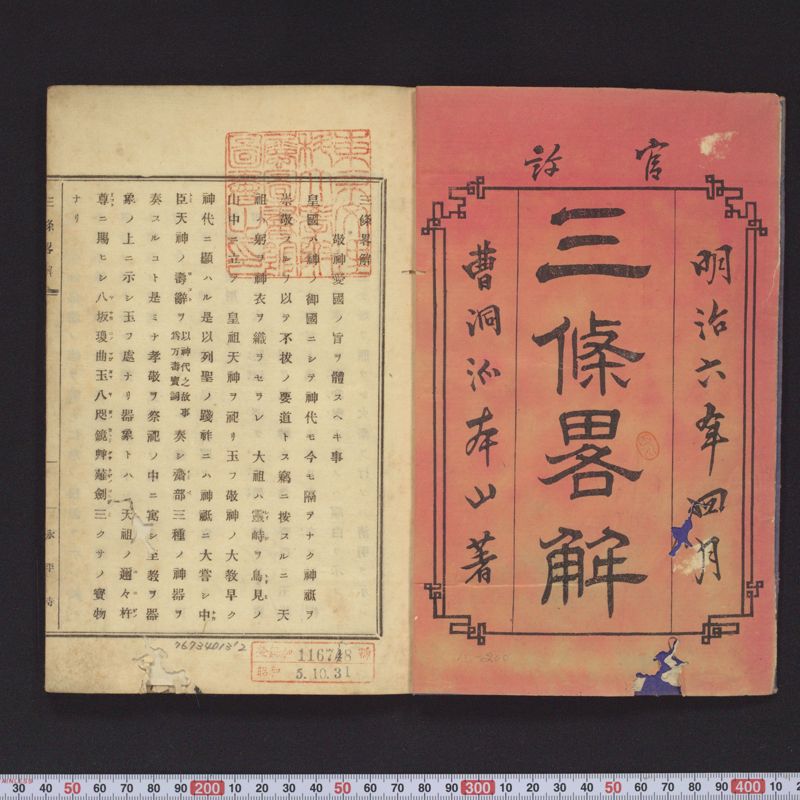 官許
明治六年四月
三條畧解
曹洞派本山著
三條畧解
敬神愛國ノ旨ヲ體スヘキ事
皇國ハ神ノ御國ニシテ神代モ今モ隔ヲナク神祇ヲ
崇敬スルヲ以テ不拔ノ要道トス竊ニ按スルニ天
祖ハ躬ヲ神衣ヲ織ヲセヲレ大祖ハ靈畤ヲ鳥見ノ
山中ニ立ヲ皇祖天神ヲ祀リ玉フ敬神ノ大教早ク
神代ニ顯ハル是以列聖ノ踐祚ニハ神祇ニ大嘗シ中
臣天神ノ壽辭ヲ以神代之故事為万壽寳詞奏シ齋部三種ノ神器ヲ
奏スルコト是ミナ孝敬ヲ祭祀ノ中ニ寓シ至教ヲ器
象ノ上ニ示シ玉フ處ナリ器象トハ天祖ノ邇々杵
尊ニ賜ヒシ八坂瓊曲玉八咫鏡艸薙劍三クサノ寳物
ナリ
三條畧解
一
116748
昭和 5.10.31
7673401312
30 40 50 60 70 80 90 200 10 20 30 40 50 60 70 80 90 300 10 20 30 40 50 60 70 80 90 400 10